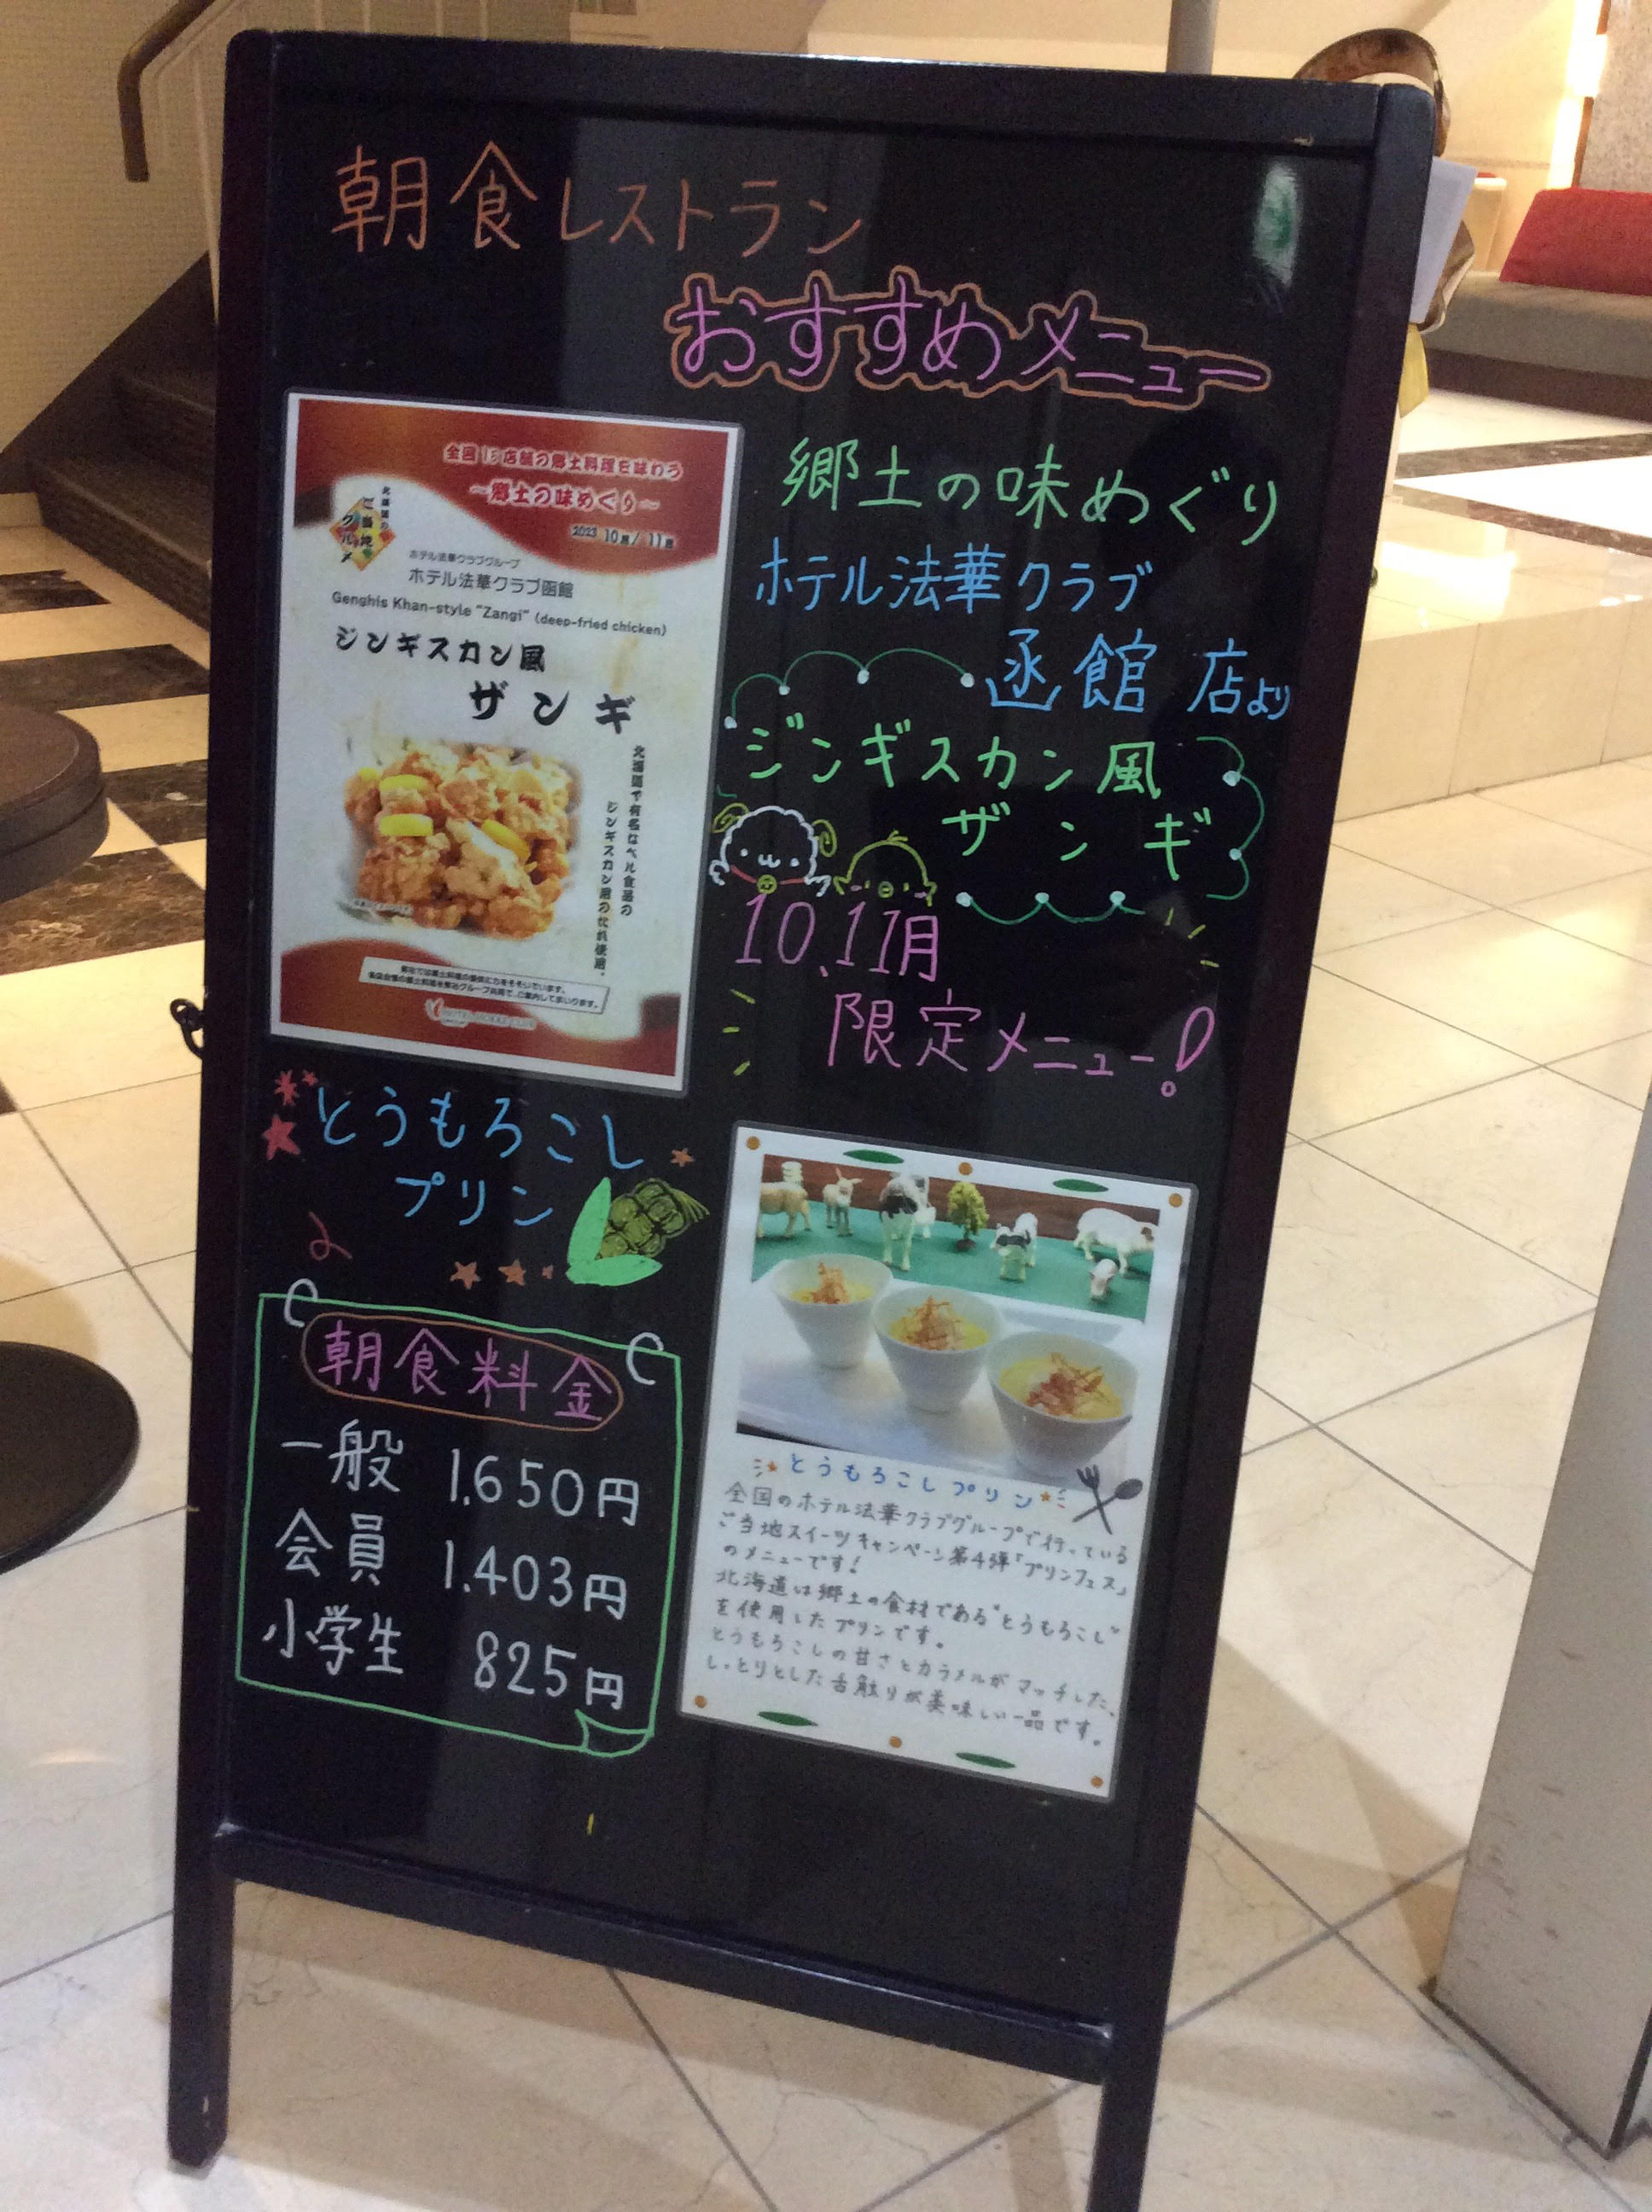 朝食レストラン
おすすめメニュー
全国15店舗の郷土料理を味わう
～郷土の味めぐり～
2023 10月/11月
北海道の
ご当地
グルメ
ホテル法華クラブグループ
ホテル法華クラブ函館
Genghis Khan-style "Zangi" (deep-fried chicken)
ジンギスカン風
ザンギ
北海道で有名なベル食品の
ジンギスカン用のたれ使用。
弊社では郷土料理の提供に力をそそいでいます。
各店自慢の郷土料理を弊社グループ共同で、ご案内してまいります。
郷土の味めぐり
ホテル法華クラブ
函館 店より
ジンギスカン風
ザンギ
10、11月
限定メニュー!
とうもろこし
プリン
朝食料金
一般 1,650円
会員 1.403円
小学生 825円
とうもろこしプリン
全国のホテル法華クラブグループで行っている
ご当地スイーツキャンペーン第4弾「プリンフェス」
のメニューです!
北海道は郷土の食材である"とうもろこし"
を使用したプリンです。
とうもろこしの甘さとカラメルがマッチした、
しっとりとした舌触りが美味しい一品です。